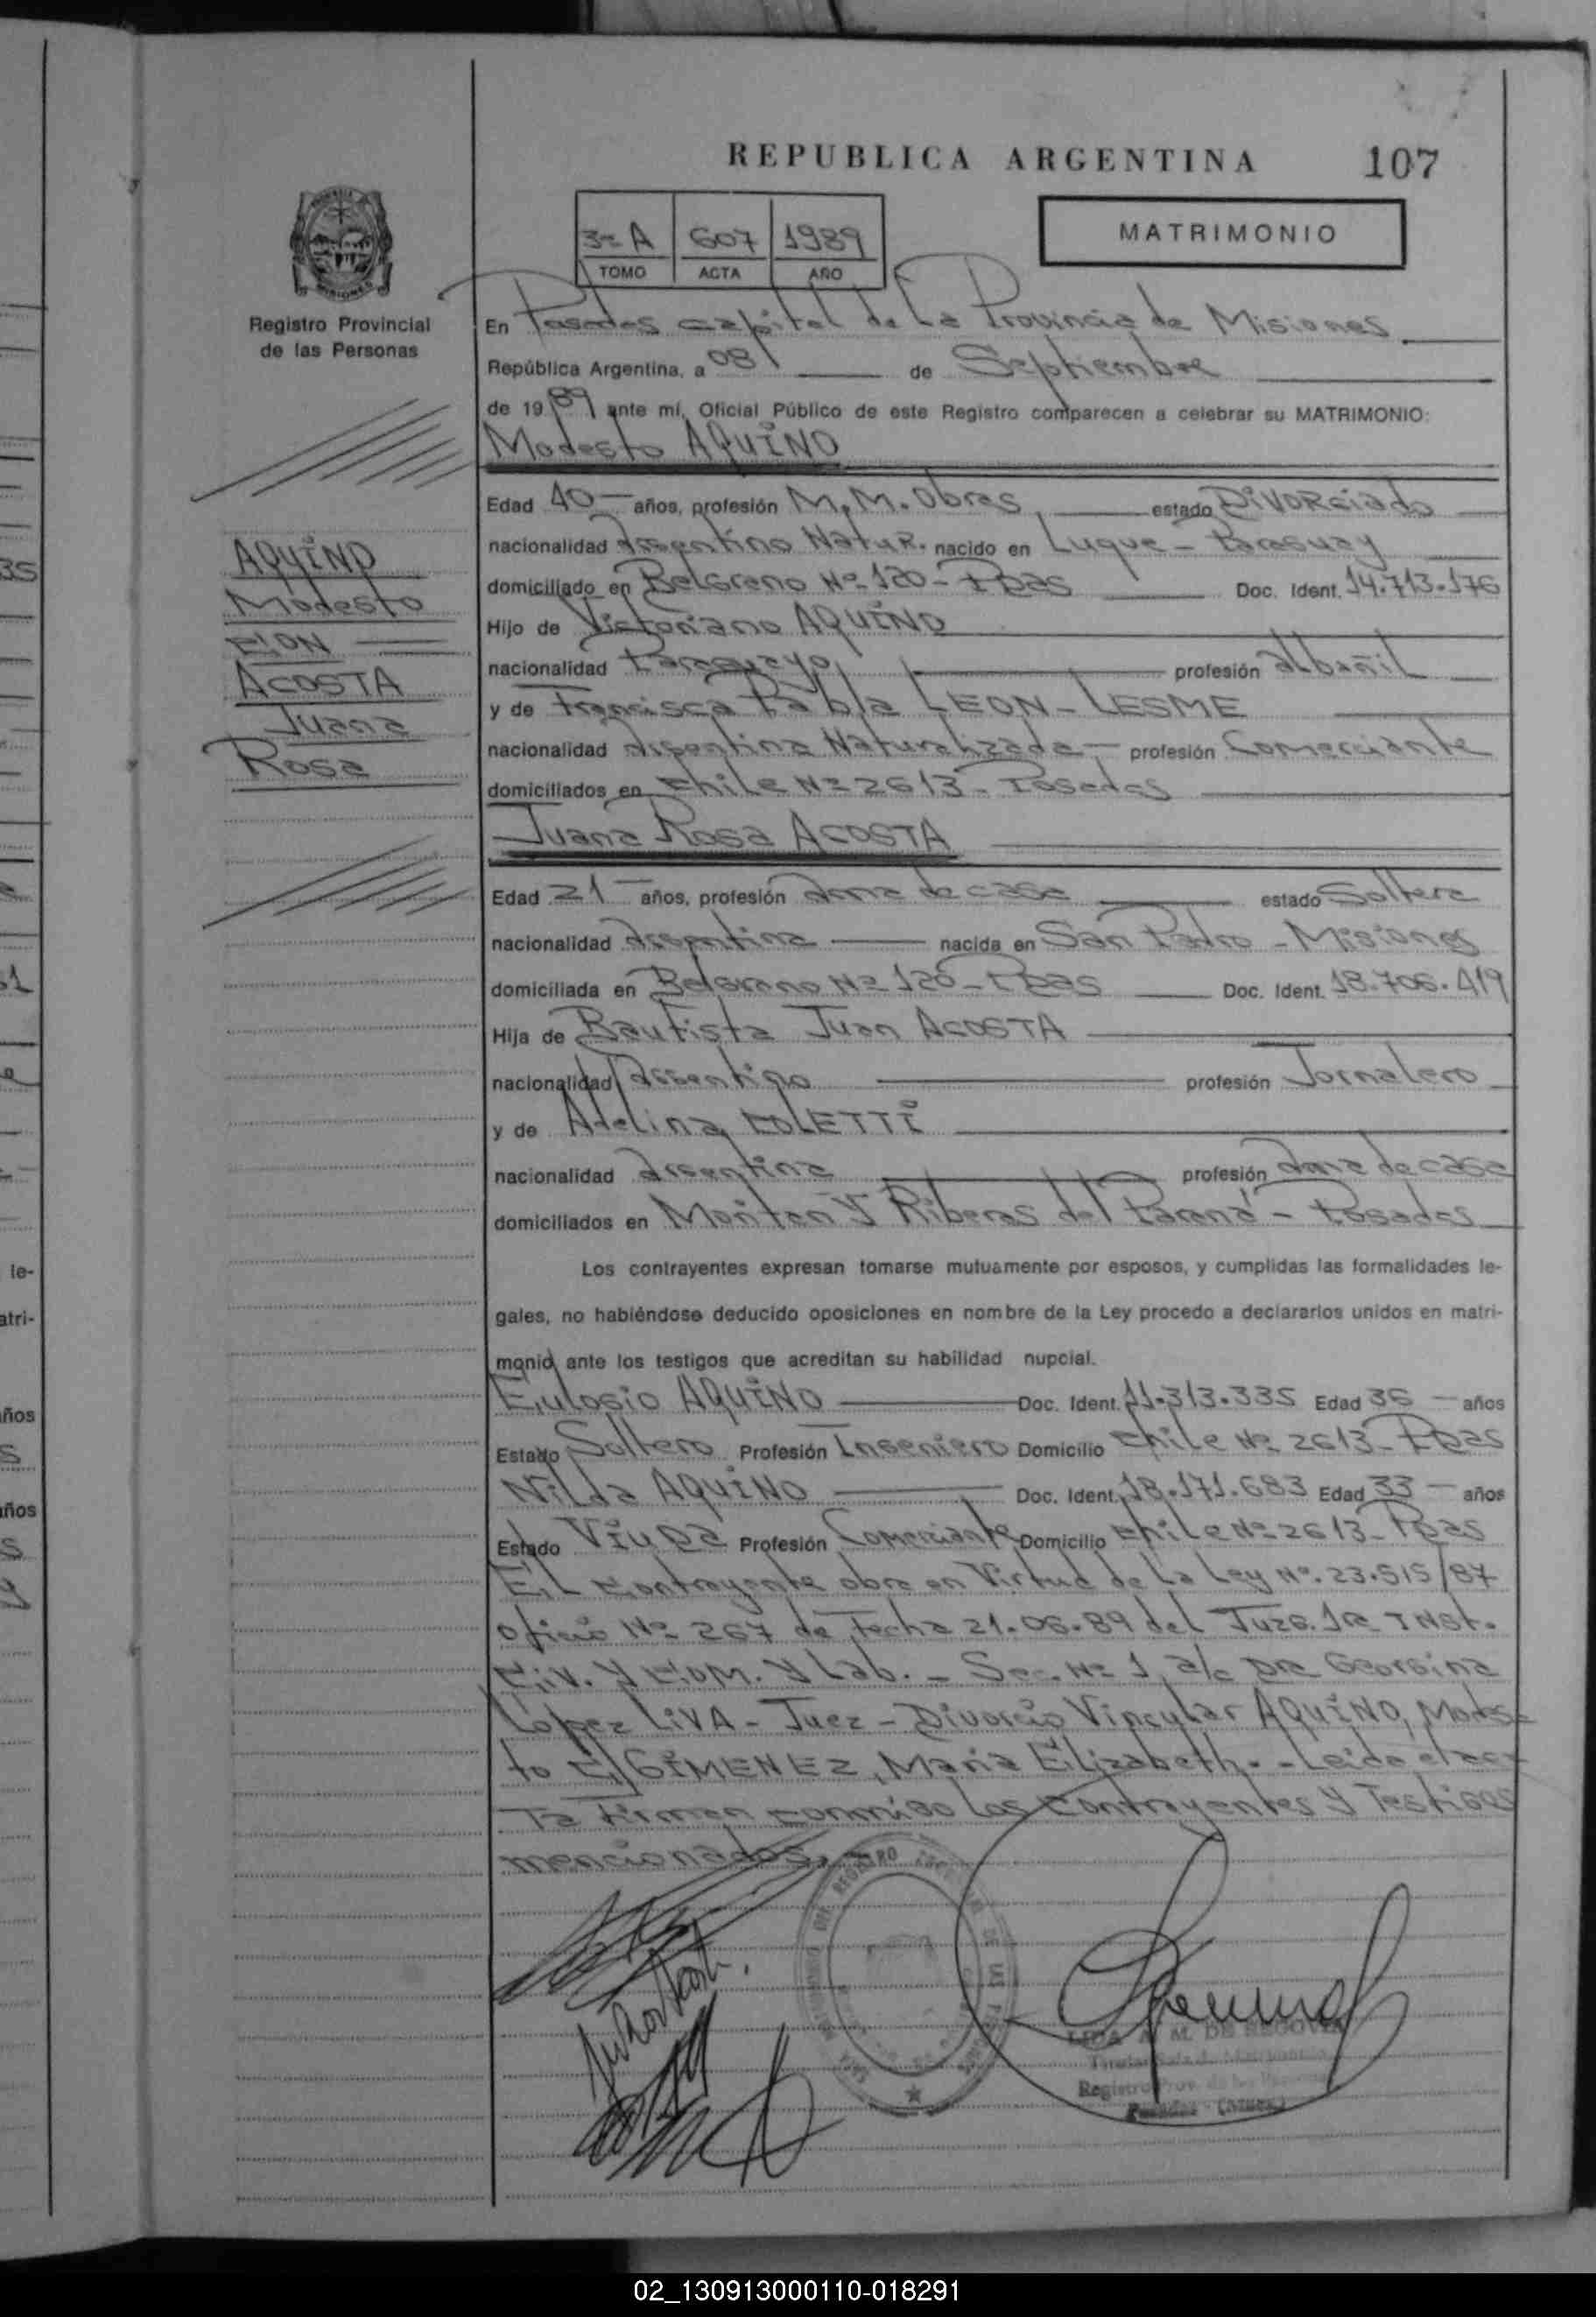 REPUBLICA ARGENTINA 107
3= A 607 1989
TOMO ACTA AÑO
MATRIMONIO
Registro Provincial
de las Personas
En Posadas capital de La Provincia de Misiones
República Argentina, a 08 de Septiembre
de 1989 ante mí, Oficial Público de este Registro comparecen a celebrar su MATRIMONIO:
Modesto AQUiNO
Edad 40 años, profesión M.M. Obras estado DiVORciado
nacionalidad Argentino NatuR. nacido en Luque - Paraguay
domiciliado en Belgrano Nº 120 - Pdas Doc. Ident. 14.713.176
Hijo de Victoriano AQUiNO
nacionalidad Paraguayo profesión albañil
y de Francisca Pabla LEON - LESME
nacionalidad Argentina Naturalizada - profesión Comerciante
domiciliados en Chile Nº 2613 - Posadas
Juana Rosa ACOSTA
Edad 21 años, profesión ama de casa estado Soltera
nacionalidad Argentina nacida en San Pedro - Misiones
domiciliada en Belgrano Nº 120 - Pdas Doc. Ident. 18.706.419
Hija de Bautista Juan ACOSTA
nacionalidad Argentino profesión Jornalero
y de Adelina COLETTi
nacionalidad Argentina profesión ama de casa
domiciliados en Y Riberas del Paraná - Posadas
AQUiNO
Modesto
CON
ACOSTA
Juana
Rosa
Los contrayentes expresan tomarse mutuamente por esposos, y cumplidas las formalidades le-
gales, no habiéndose deducido oposiciones en nombre de la Ley procedo a declararlos unidos en matri-
monio ante los testigos que acreditan su habilidad nupcial.
Eulogio AQUiNO Doc. Ident. 11.313.335 Edad 35 años
Estado Soltero Profesión Ingeniero Domicilio Chile Nº 2613 - Pdas
Nilda AQUiNO Doc. Ident. 18.171.683 Edad 33 años
Estado Viuda Profesión Comerciante Domicilio Chile Nº 2613 - Pdas
El contrayente obra en Virtud de La Ley Nº. 23.515/87
oficio Nº 267 de Fecha 21.06.89 del Juzg. 1ra INst.
Civ. y COM. y Lab. - Sec. Nº 1, a/c Dra Georgina
López LiVA - Juez - Divorcio Vincular AQUiNO, Modes
to C/ GiMENEZ, Maria Elizabeth. - Leida el ac
ta Firman conmigo Los contrayentes y Testigos
mencionados.
LIDA M. DE SEGOVIA
Registro Prov. de las Personas
Posadas (Mnes.)
le-
atri-
años
años
02_130913000110-018291